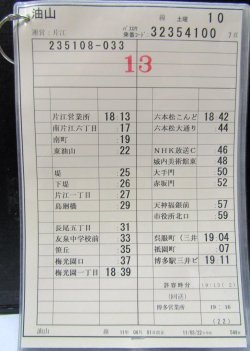 油山
土曜 10
運営：片江 32354100
235108-033
13
片江営業所 18 13 六本松こんど 18 42
南片江六丁目 17 六本松大通り 44
南町 19
東油山 22 NHK放送C 46
城内美術館東 48
堤 25 大手門 50
下堤 26 赤坂門 52
片江一丁目 27
島廻橋 29 天神福銀前 57
市役所北口 59
長尾五丁目 31
友泉中学校前 33 呉服町（三井 19 04
笹丘 35 祇園町 07
梅光園口 37 博多駅三井ビ 19 11
梅光園一丁目 18 39
（回送）
博多営業所
油山